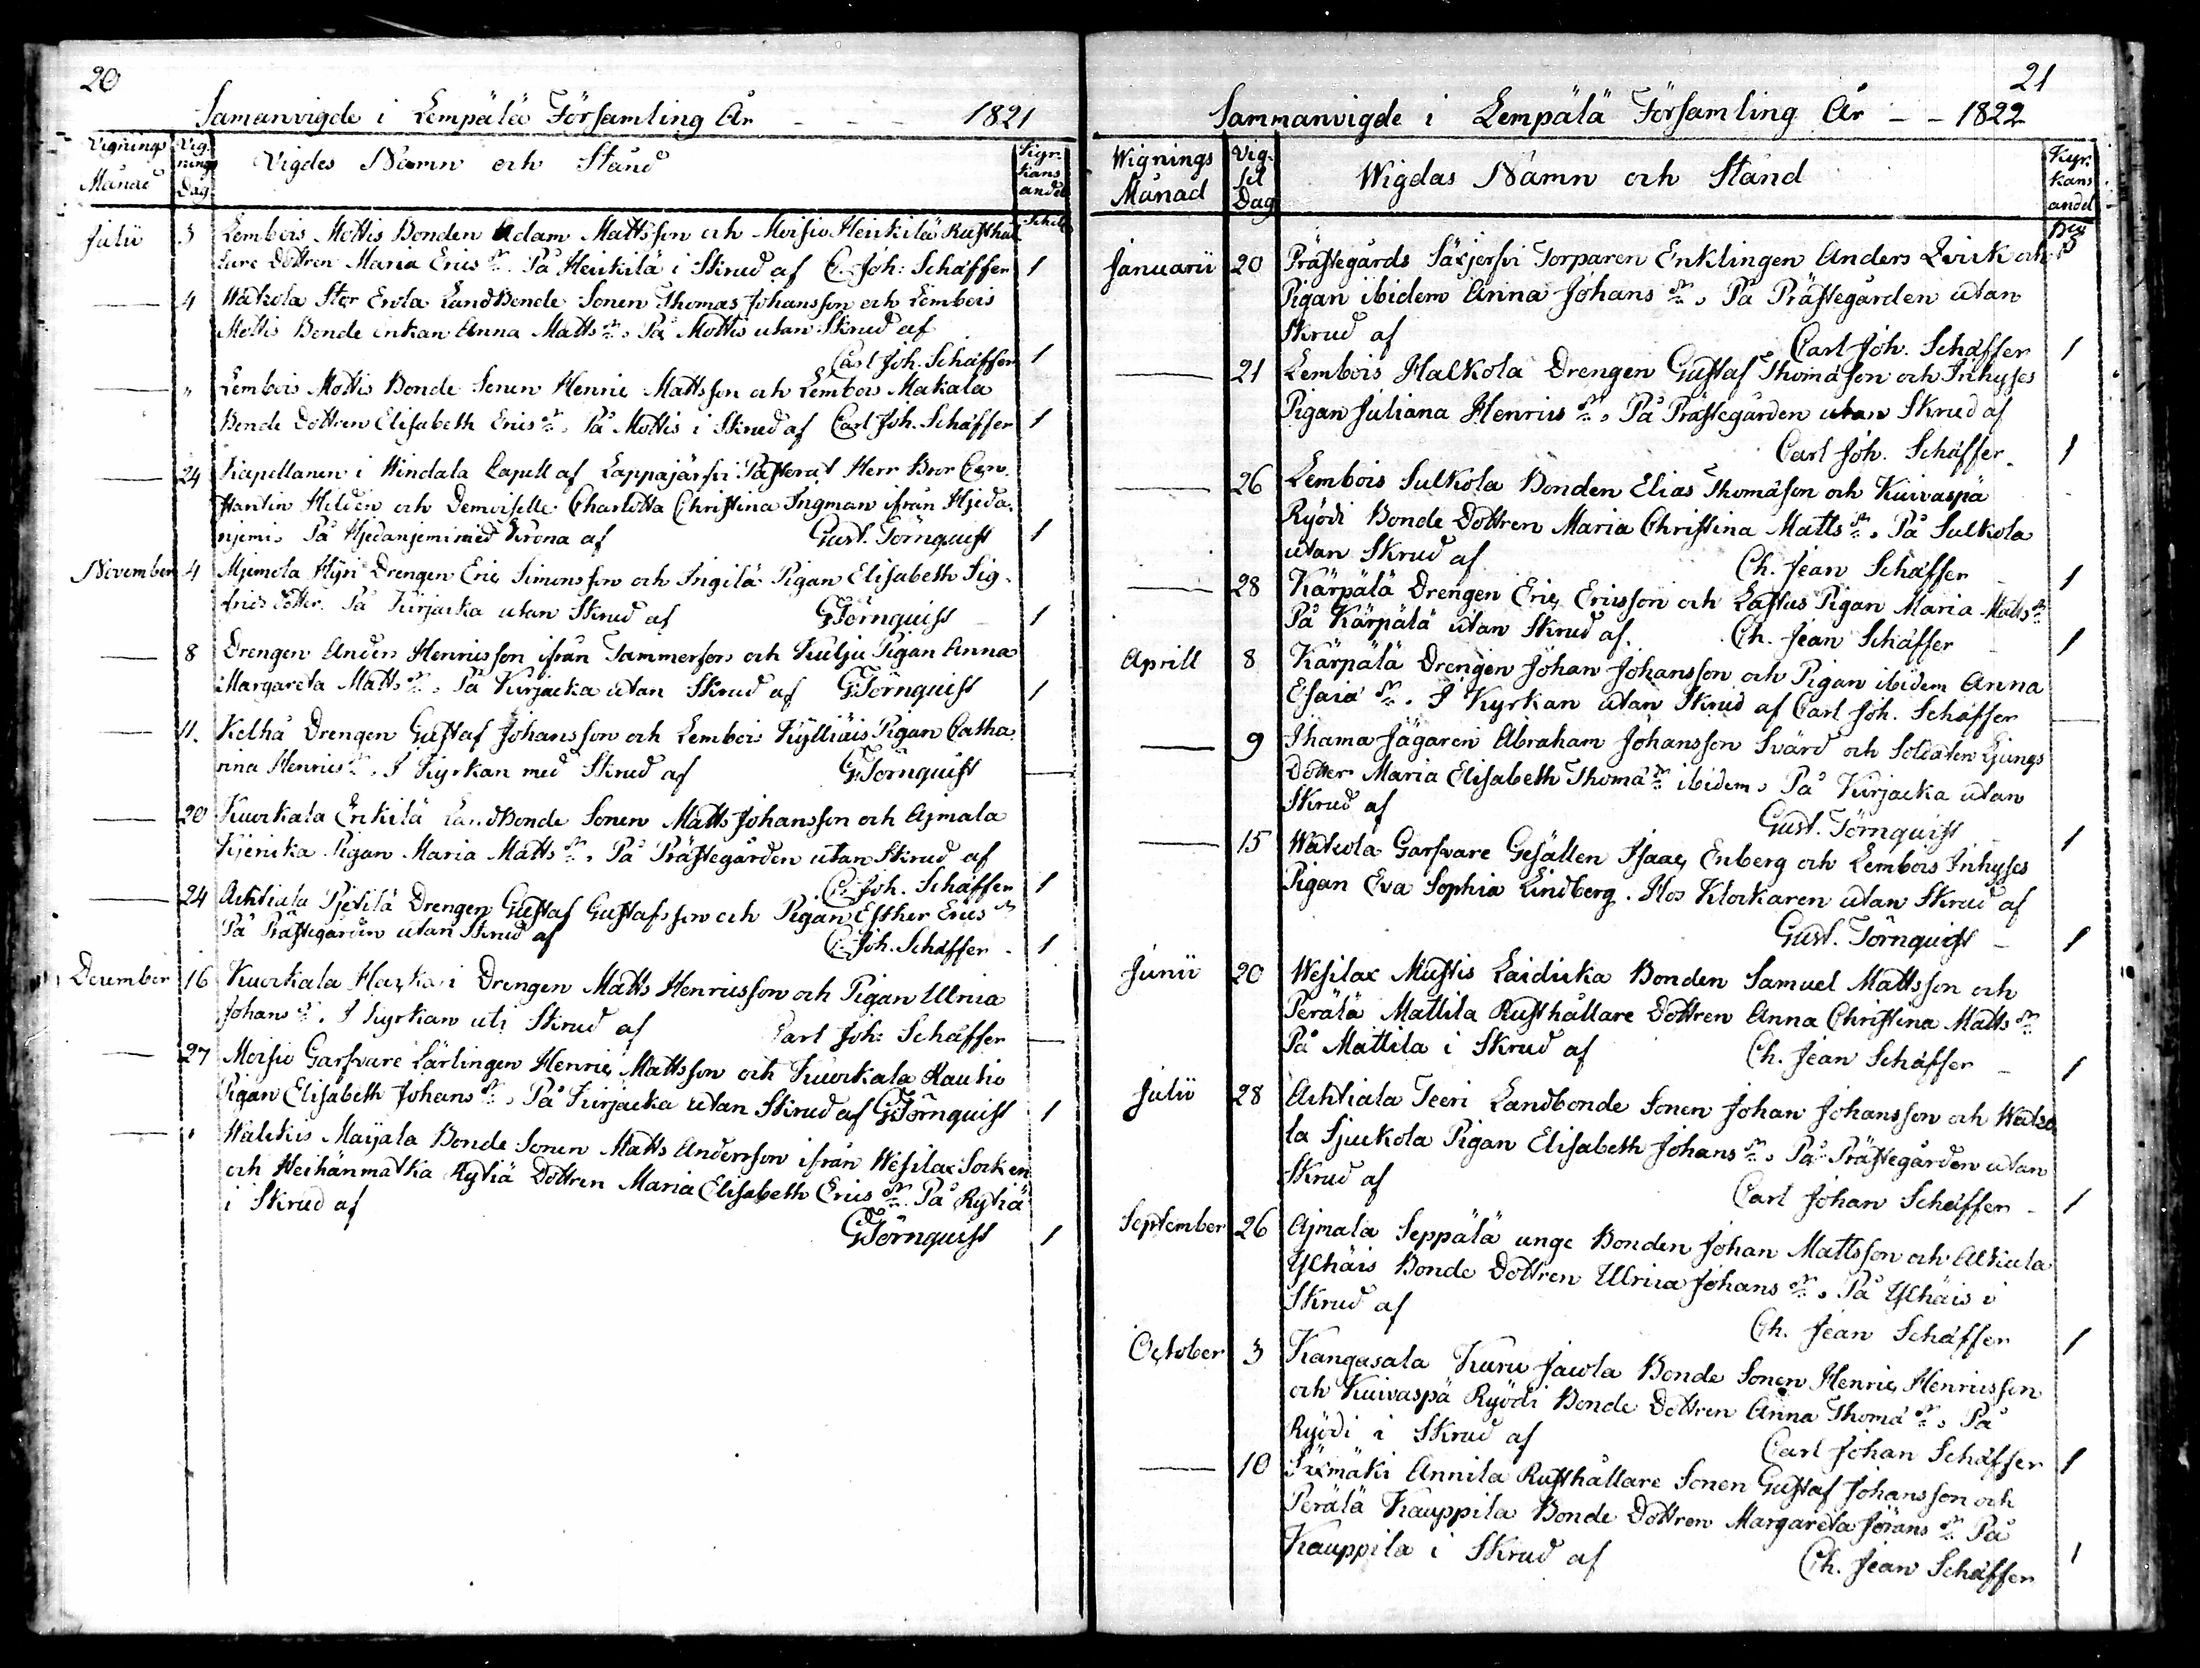 20
Samanvigde i Lempälä Församling År - - - 1821
Vignings Månad
Vig-nings Dag
Vigdes Namn och Stånd
Kyr-kans andel
Julii 3 Lembois Mottis Bonden Adam Mattsson och Moisio Heikilä Rusthål
lare Dottren Maria Erics dr. På Heikilä i Skrud af C. Joh: Schäffer 1
— 4 Wakola Stor Enola LandBonde Sonen Thomas Johansson och Lembois
Mottis Bonde Enkan Anna Matts dr. På Mottis utan Skrud af
Carl Joh. Schäffer 1
— " Lembois Mottis Bonde Sonen Henric Mattsson och Lembois Makala
Bonde Dottren Elisabeth Erics dr. På Mottis i Skrud af Carl Joh. Schäffer 1
— 24 Kapellanen i Windala Capell af Lappajärfvi Pastorat Herr Bror Con
stantin Heldén och Demoiselle Charlotta Christina Ingman ifrån Hjeda
njemi. På Hjedanjemi med Krona af Gust. Törnquist 1
November 4 Mjemola Hÿri Drengen Eric Simonsson och Ingilä Pigan Elisabeth Sig-
frids dotter. På Kurjacka utan Skrud af GTörnquist 1
— 8 Drengen Anders Henricsson ifrån Tammerfors och Kulju Pigan Anna
Margareta Matts dr. På Kurjacka utan Skrud af GTörnquist 1
— 11. Kelhå Drengen Gustaf Johansson och Lembois Kylliäis Pigan Catha
rina Henrics dr. I Kyrkan med Skrud af GTörnquist —
— 20 Kuokala Erkilä LandBonde Sonen Matts Johansson och Ajmala
Kjenika Pigan Maria Matts dr. På Prästegården utan Skrud af
C. Joh. Schäffer 1
— 24 Achtiala Pjetilä Drengen Gustaf Gustafsson och Pigan Esther Erics dr
På Prästegården utan Skrud af C. Joh. Schäffer - 1
December 16 Kuokala Drengen Matts Henricsson och Pigan Ulrica
Johans dr. I Kyrkan uti Skrud af Carl Joh: Schäffer —
— 27 Moisio Garfvare Lärlingen Henric Mattsson och Kuokala Rautio
Pigan Elisabeth Johans dr. På Kurjacka utan Skrud af GTörnquist 1
— " Walckis Maijala Bonde Sonen Matts Andersson ifrån Wesilax Socken
och Heihänmatka Rytiä Dottren Maria Elisabeth Erics dr. På Rytiä
i Skrud af
GTörnquist 1
21
Sammanvigde i Lempälä Församling År - - 1822
Wignings Månad
Vig-sel Dag
Wigdas Namn och Stånd
Kyr-kans andel
Januarii 20 Prästegårds Säxjerfvi Torparen Enklingen Anders Qvick och
Pigan ibidem Anna Johans dr. På Prästegården utan
Skrud af
Carl Joh. Schäffer 1
— 21 Lembois Halkola Drengen Gustaf Thomasson och Inhyses
Pigan Juliana Henrics dr. På Prästegården utan Skrud af
Carl Joh. Schäffer. 1
— 26 Lembois Sulkola Bonden Elias Thomasson och Kuivaspä
Ryödi Bonde Dottren Maria Christina Matts dr. På Sulkola
utan Skrud af Ch. Jean Schäffer 1
— 28 Kärpälä Drengen Eric Ericsson och Lastus Pigan Maria Matts dr
På Kärpälä utan Skrud af. Ch. Jean Schäffer 1
Aprill 8 Kärpälä Drengen Johan Johansson och Pigan ibidem Anna
Esaiæ dr. I Kyrkan utan Skrud af Carl Joh. Schäffer —
— 9 Ihama Jägaren Abraham Johansson Svärd och Soldaten Ljungs
Dotter Maria Elisabeth Thomæ dr ibidem. På Kurjacka utan
Skrud af
Gust. Törnquist 1
— 15 Wakola Garfvare Gesällen Isaac Enberg och Lembois Inhyses
Pigan Eva Sophia Lindberg. Hos Klockaren utan Skrud af
Gust. Törnquist - 1
Junii 20 Wesilax Mustis Laidicka Bonden Samuel Mattsson och
Perälä Mattila Rusthållare Dottren Anna Christina Matts dr
På Mattila i Skrud af Ch. Jean Schäffer - 1
Julii 28 Achtiala Teeri Landbonde Sonen Johan Johansson och Wako
la Sjuckola Pigan Elisabeth Johans dr. På Prästegården utan
Skrud af
Carl Johan Schäffer - 1
September 26 Ajmala Seppälä unge Bonden Johan Mattsson och Alkula
Ylhäis Bonde Dottren Ulrica Johans dr. På Ylhäis i
Skrud af
Ch. Jean Schäffer 1
October 3 Kangasala Kuru Jacola Bonde Sonen Henric Henricsson
och Kuivaspä Ryödi Bonde Dottren Anna Thomæ dr. På
Ryödi i Skrud af Carl Johan Schäffer 1
— 10 Säxmäki Annila Rusthållare Sonen Gustaf Johansson och
Perälä Kauppila Bonde Dottren Margareta Jörans dr. På
Kauppila i Skrud af Ch. Jean Schäffer 1